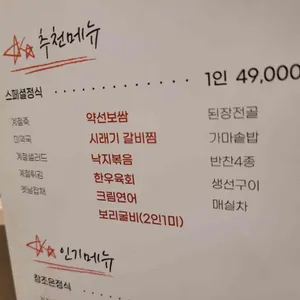 추천메뉴
스페셜정식 1인 49,000
계절죽 약선보쌈 된장전골
미역국 시래기 갈비찜 가마솥밥
계절샐러드 낙지볶음 반찬4종
계절튀김 한우육회 생선구이
옛날잡채 크림연어 매실차
보리굴비(2인1미)
인기메뉴
참조은정식